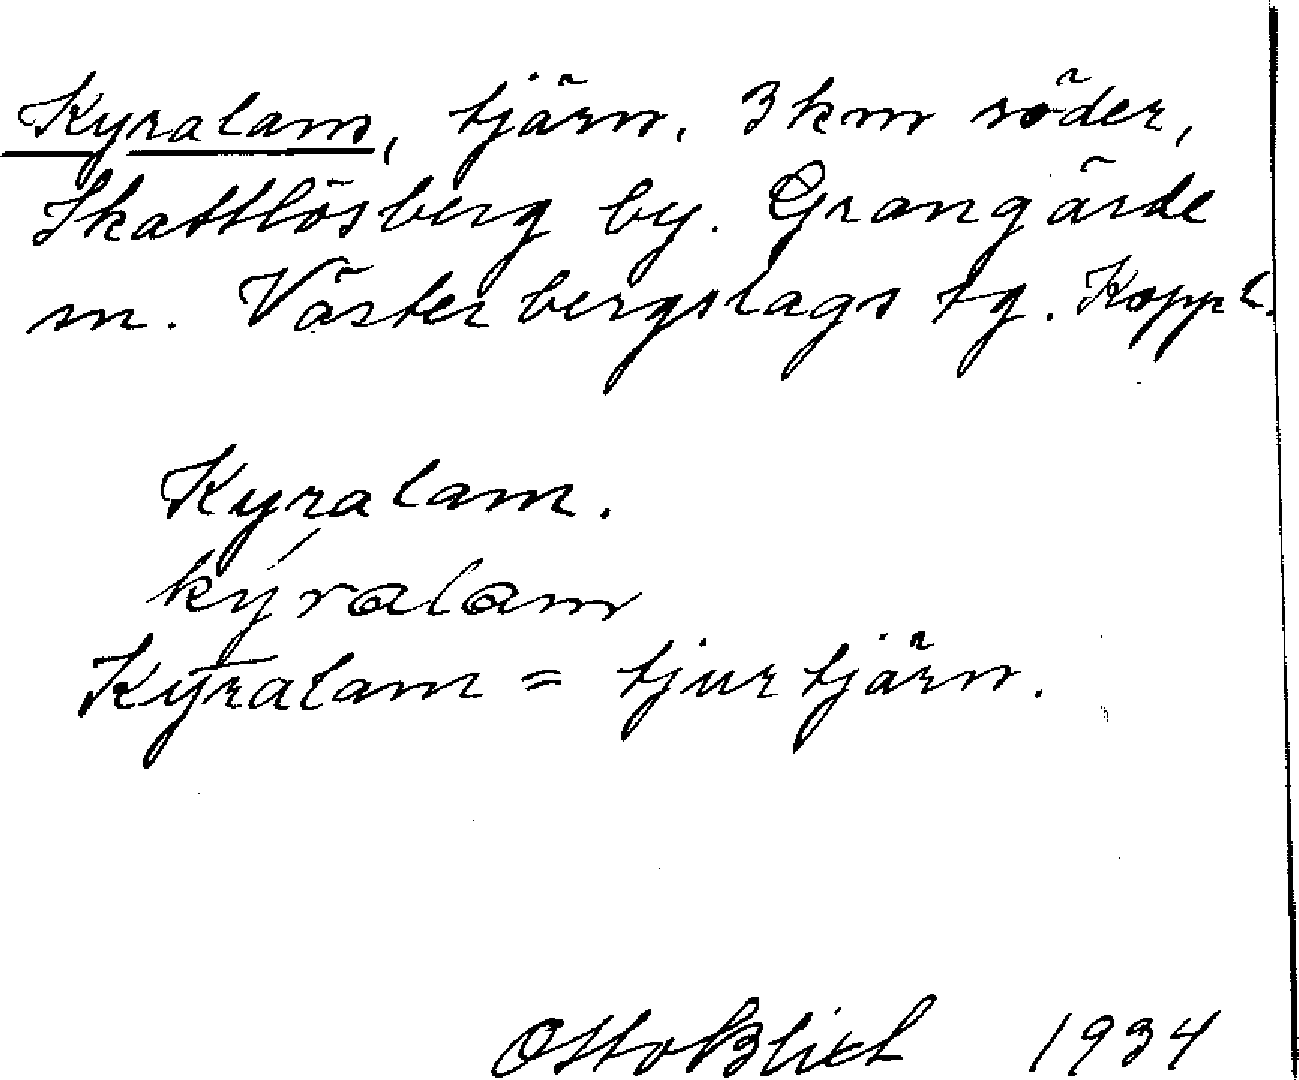 Kyralam, tjärn, 3 km söder,
Skattlösberg by. Grangärde
sn. Västerbergslags tg. Koppl.
Kyralam.
ky'ralam
Kyralam = tjurtjärn.
Otto Blixt 1934